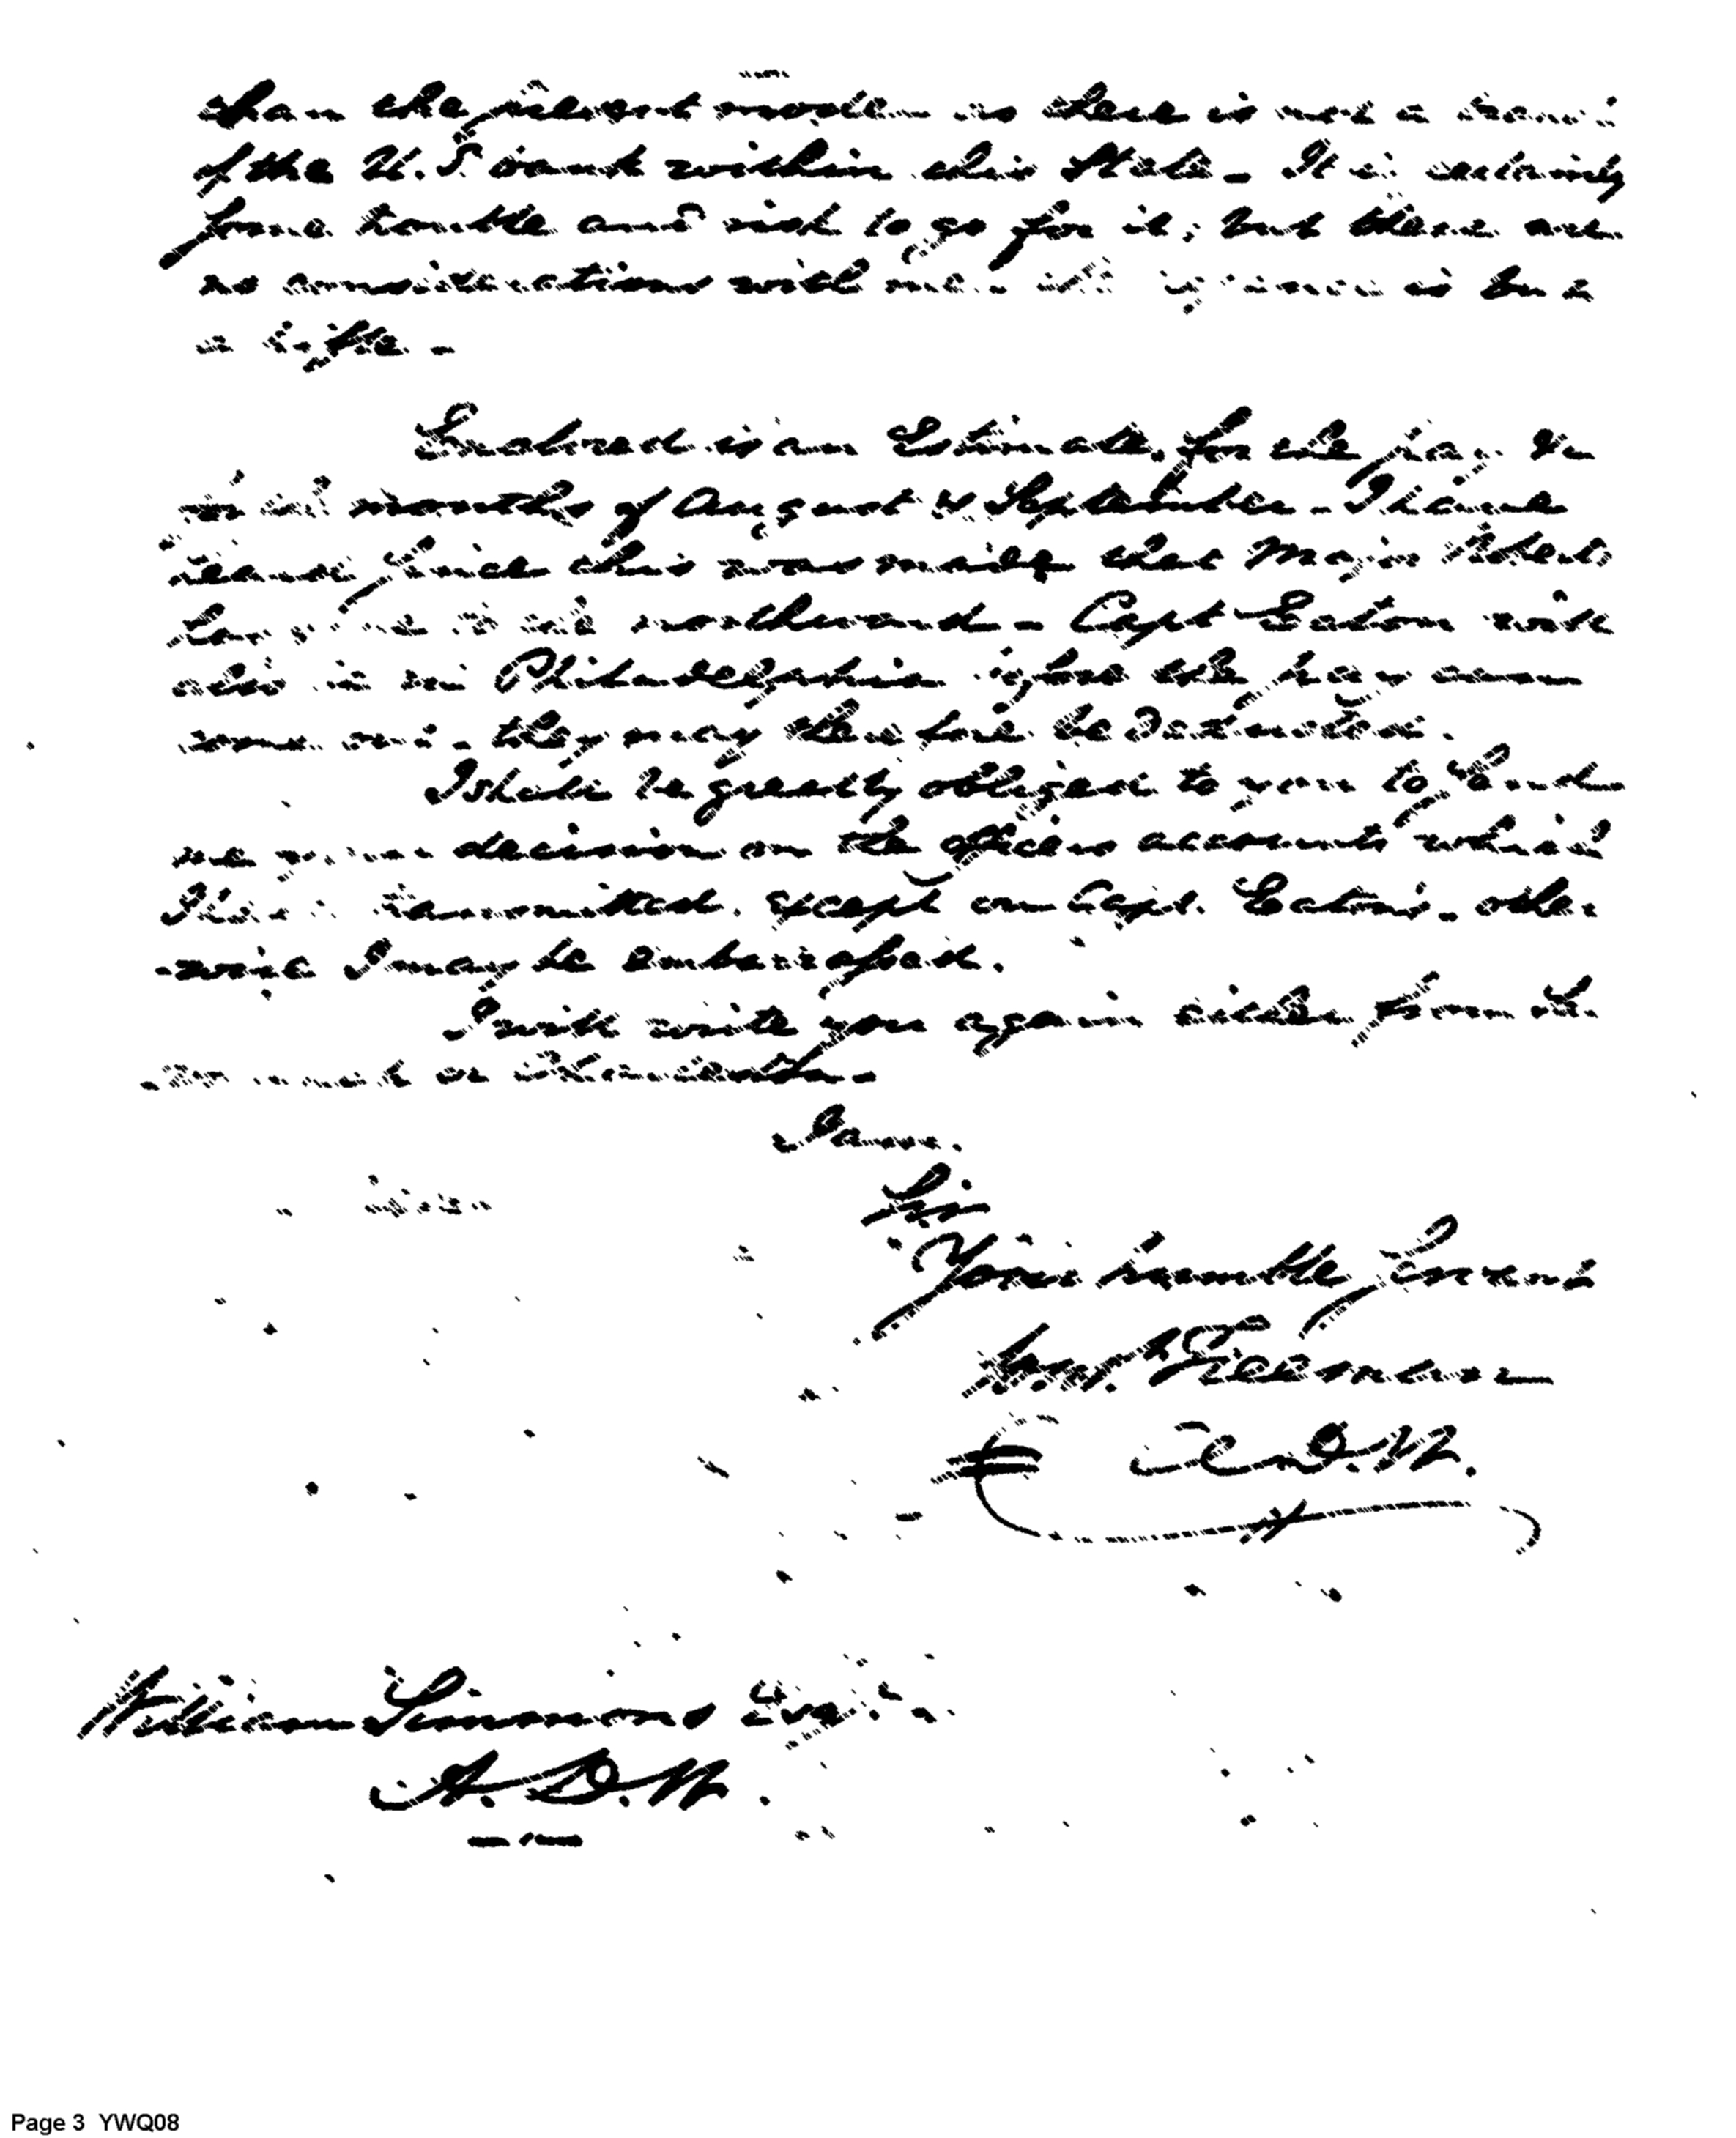 than the present mode as there is not a
of the U. S bank within this State - It is certainly
some trouble and risk to go for it; but these are
no considerations with me is but
a trifle -
Enclosed is an Estimate, for the pay &c
months of August & September - I have
since this was made that Major
northward - Capt Eaton will
also in Philadelphia before the pay can
they may therefore be deducted.
I shall be greatly obliged to you to send
me your decision on the officers accounts which
I have transmitted, except on Capt. Eaton's - other
-wise I may be embarrassed.
I will write you again either from St.
or
I am.
Sir.
Your humble Servant
Freeman
A. D. W.
William Simmons Esqr.
A. D. W.
Page 3 YWQ08